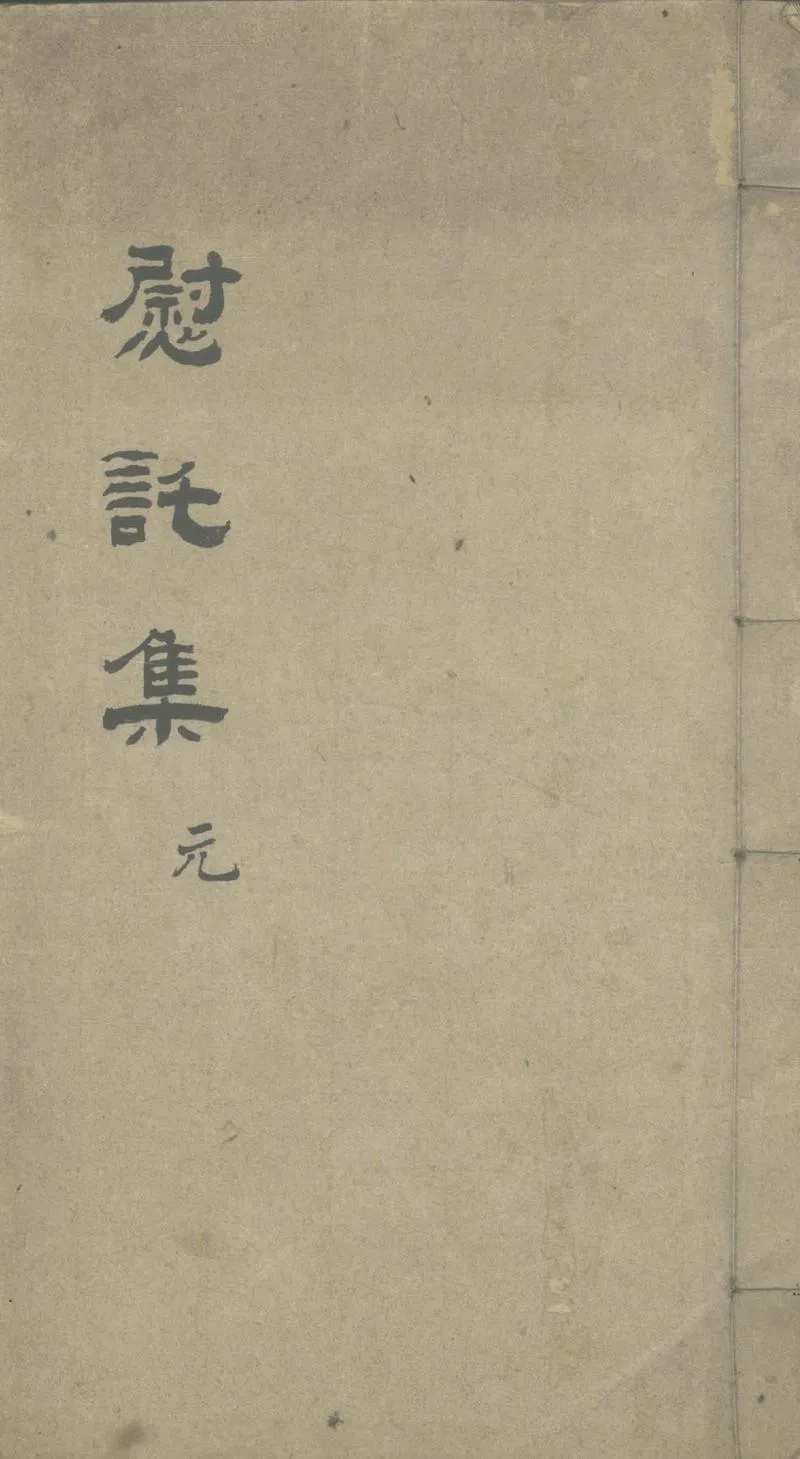 慰託集 元